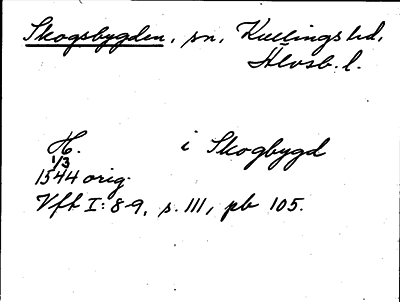 Skogsbygden, sn, Kullings hd,
Älvsb. l.
H. i Skogbygd
1/3
1544 orig.
Vfft I: 8-9, s. 111, pb 105.